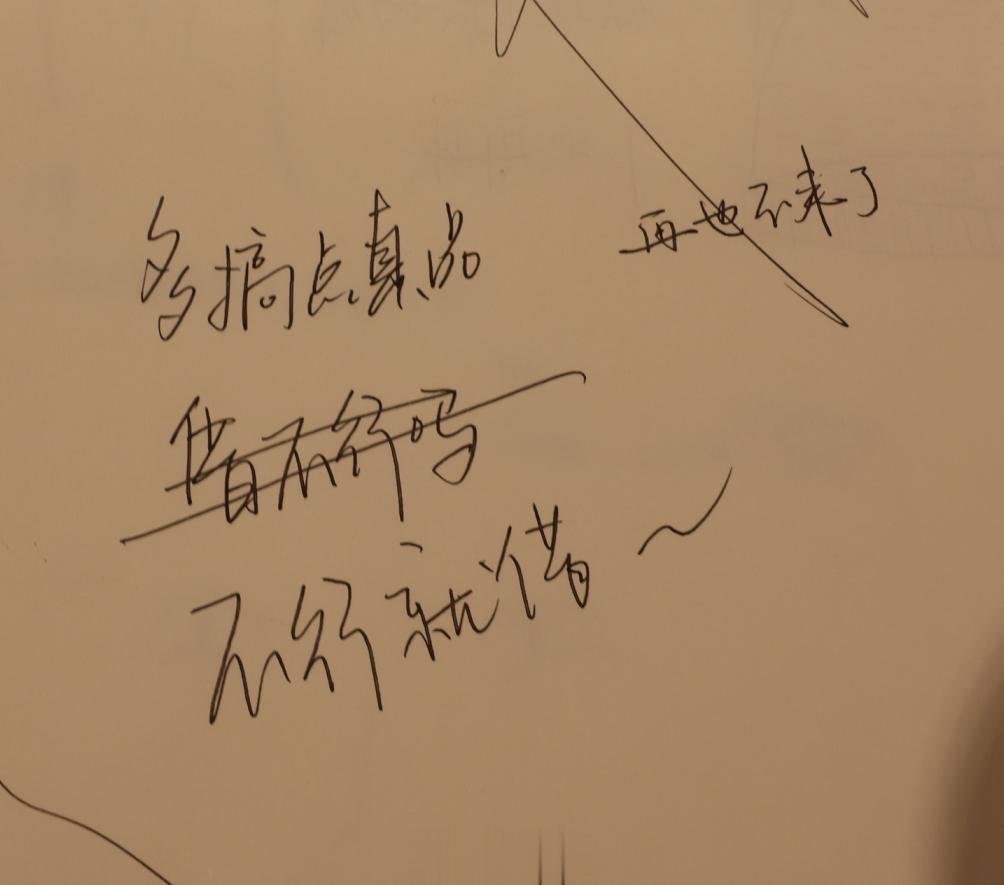 多搞点真品
再也不来了
借不行吗
不行就借~